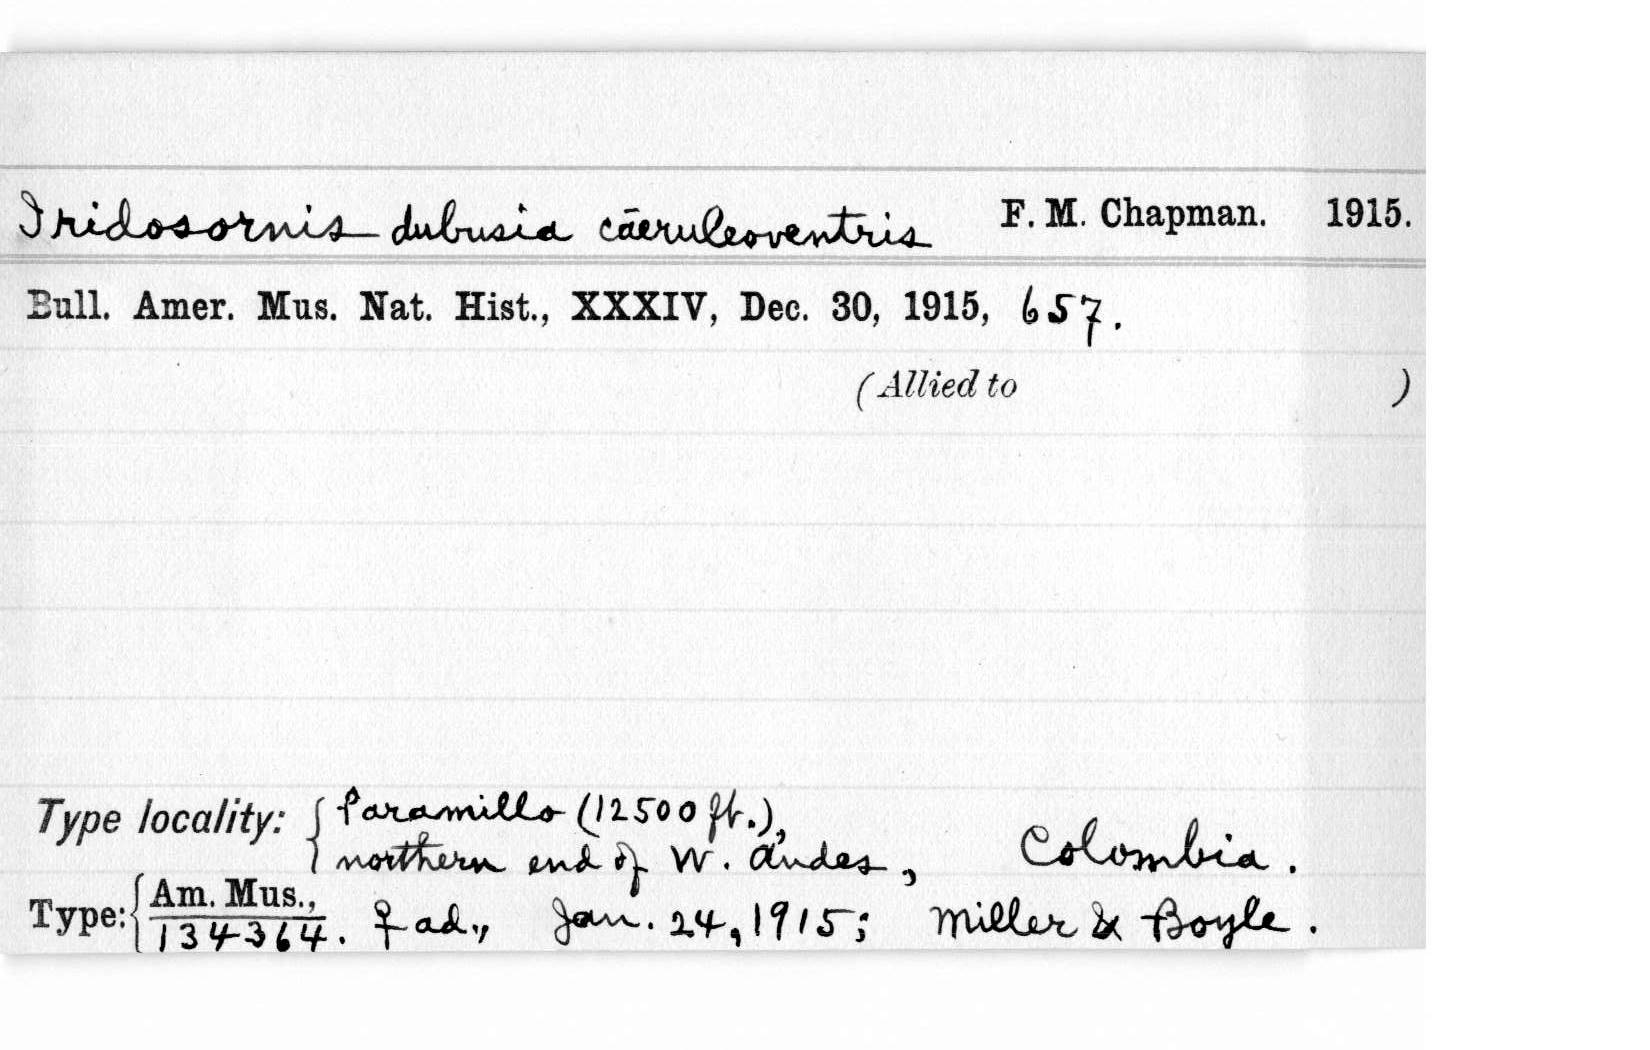 Iridosornis dubusia cāeruleoventris F. M. Chapman. 1915.
Bull. Amer. Mus. Nat. Hist., XXXIV, Dec. 30, 1915, 657.
(Allied to )
Type locality: { Paramillo (12500 ft.),
northern end of W. Andes, Colombia.
Type: { Am. Mus.,
134364. ♀ ad., Jan. 24, 1915; Miller & Boyle.